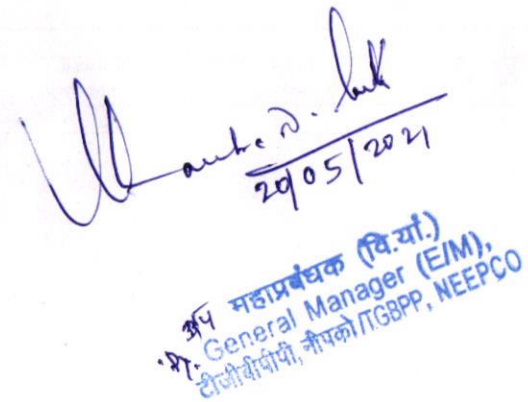 20/05/2021
उप महाप्रबंधक (वि.यां.)
General Manager (E/M),
टीजीबीपीपी, नीपको/TGBPP, NEEPCO